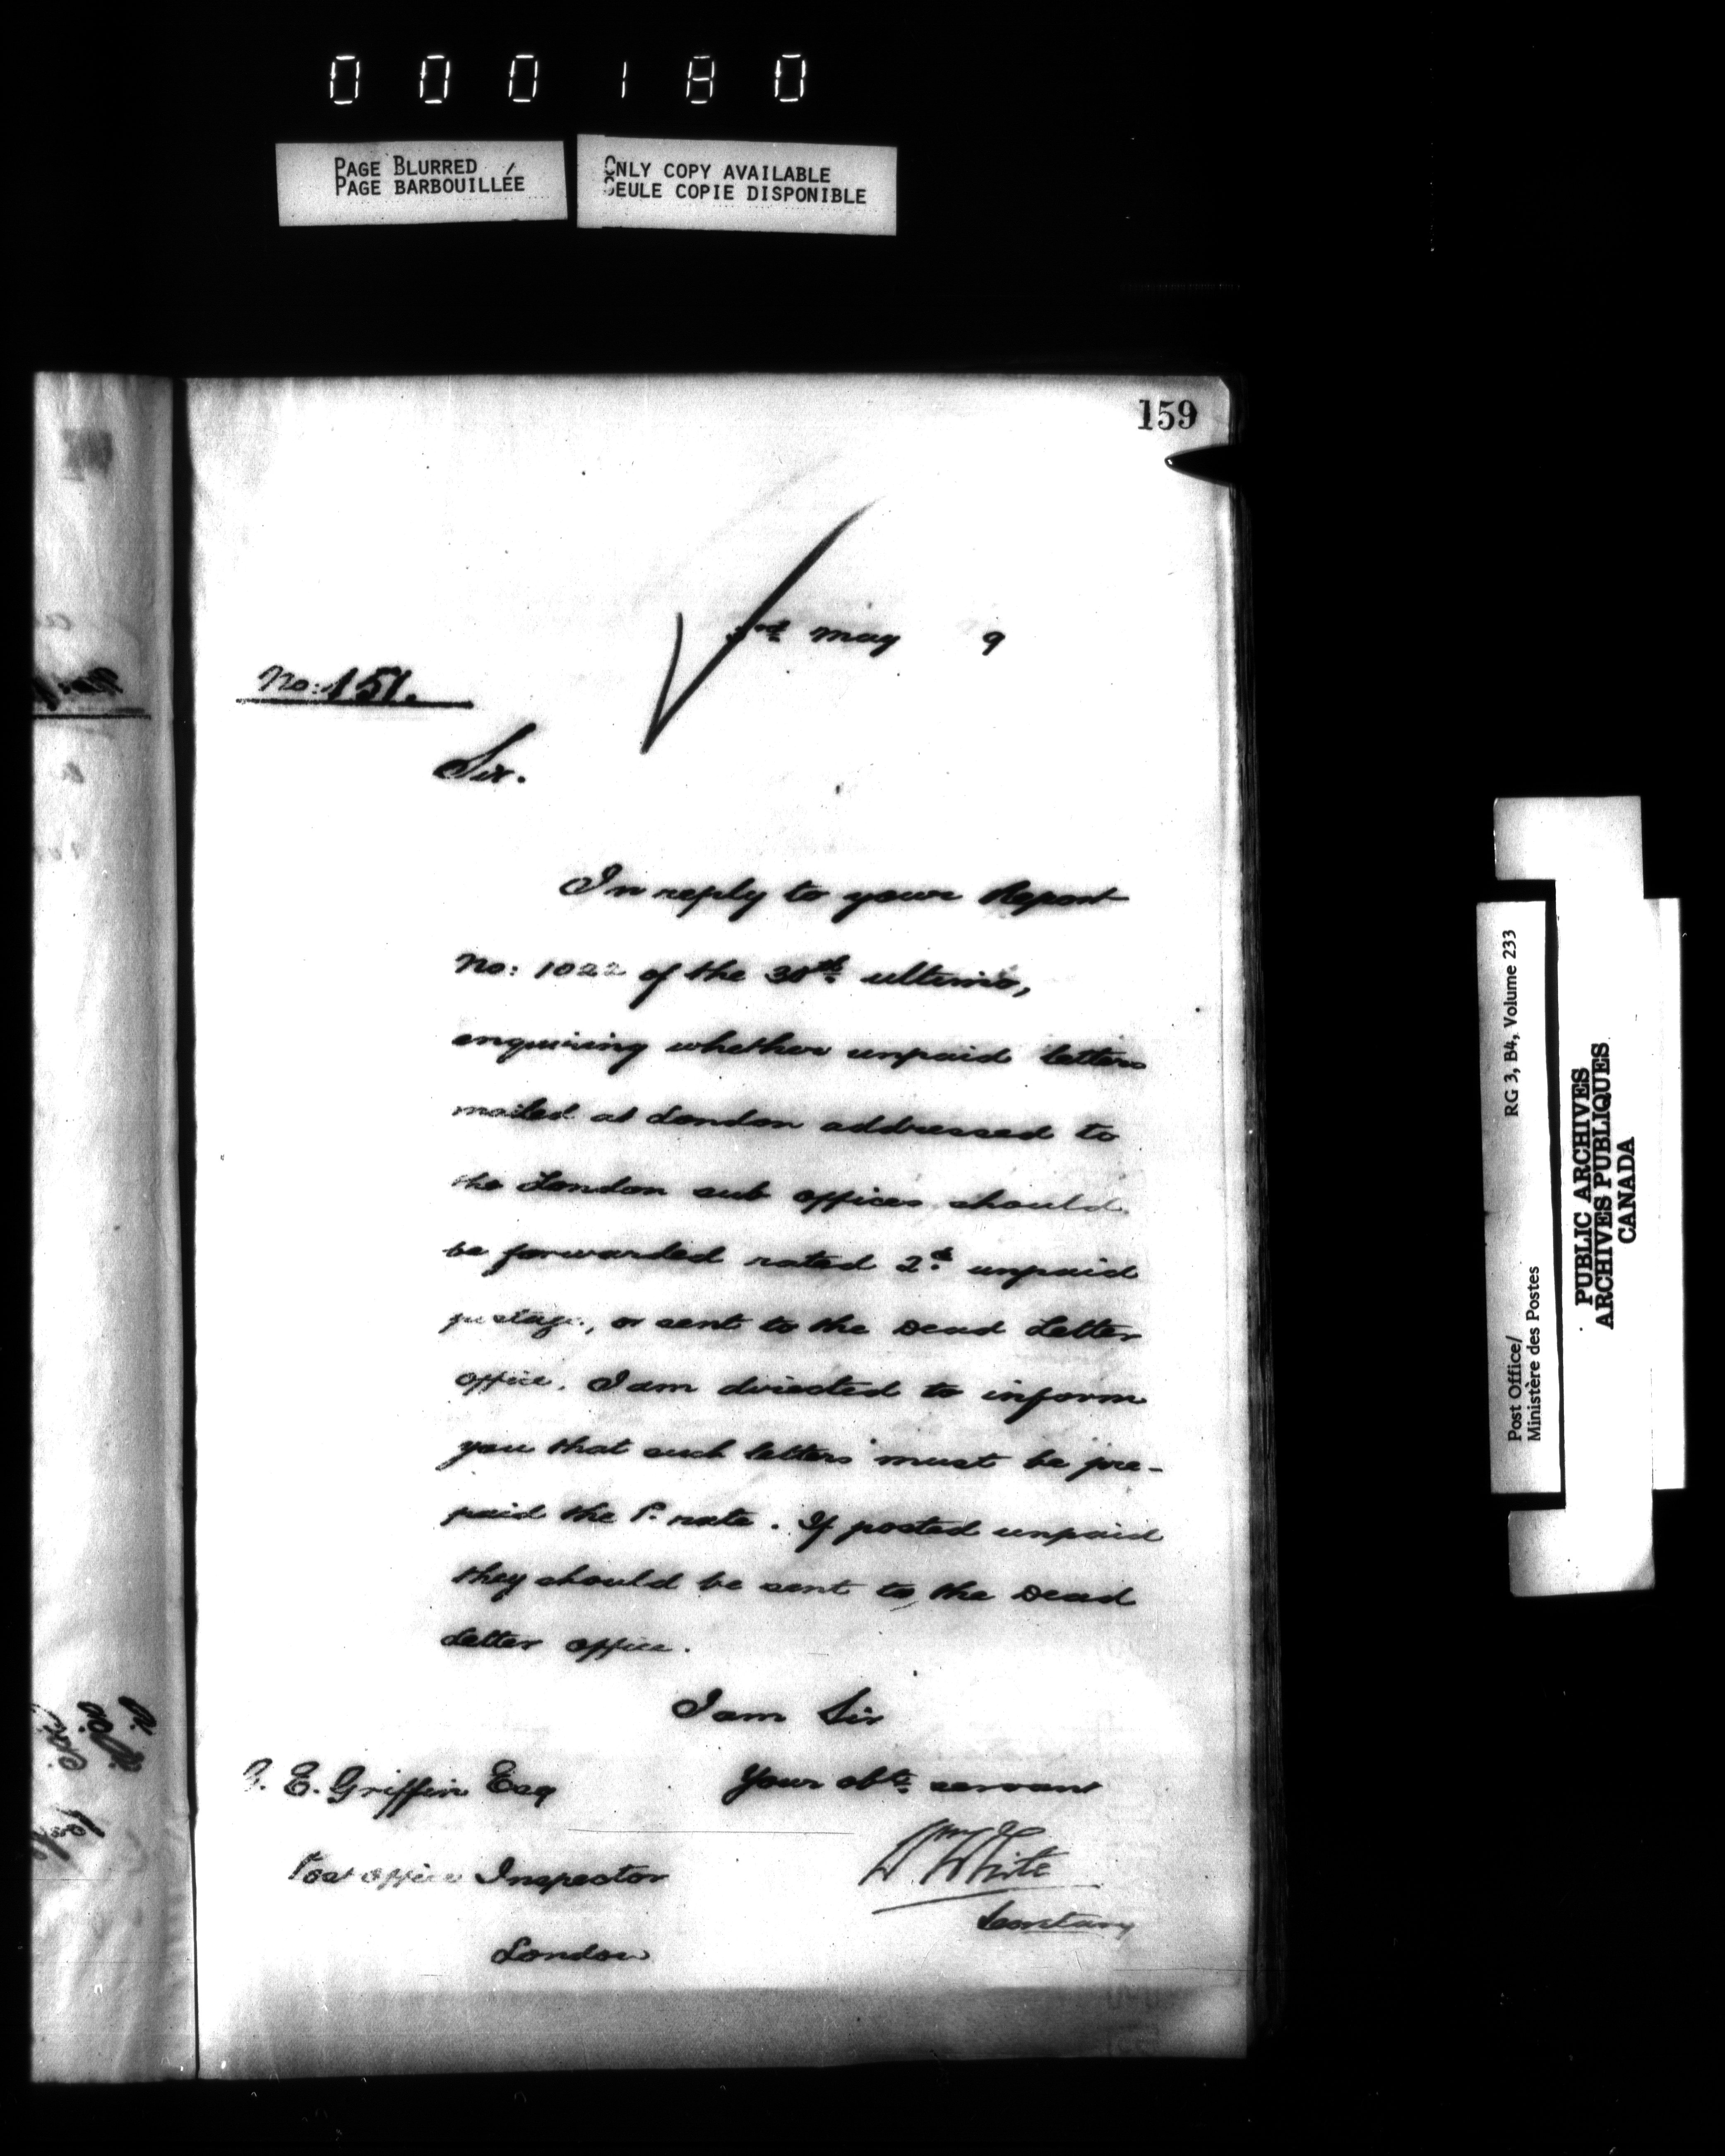 000180
PAGE BLURRED
PAGE BARBOUILLÉE
ONLY COPY AVAILABLE
SEULE COPIE DISPONIBLE
159
3rd May 9
No: 151.
Sir.
In reply to your Report
No: 1022 of the 30th ultimo,
enquiring whether unpaid letters
mailed at London addressed to
the London sub offices should
be forwarded rated 2d unpaid
postage, or sent to the Dead Letter
office. I am directed to inform
you that such letters must be pre-
paid the rate. If posted unpaid
they should be sent to the Dead
Letter office.
I am Sir
Your obt. servant
Wm White
Secretary
E. Griffin Esq
Post office Inspector
London
Post Office/ RG 3, B4, Volume 233
Ministère des Postes
PUBLIC ARCHIVES
ARCHIVES PUBLIQUES
CANADA